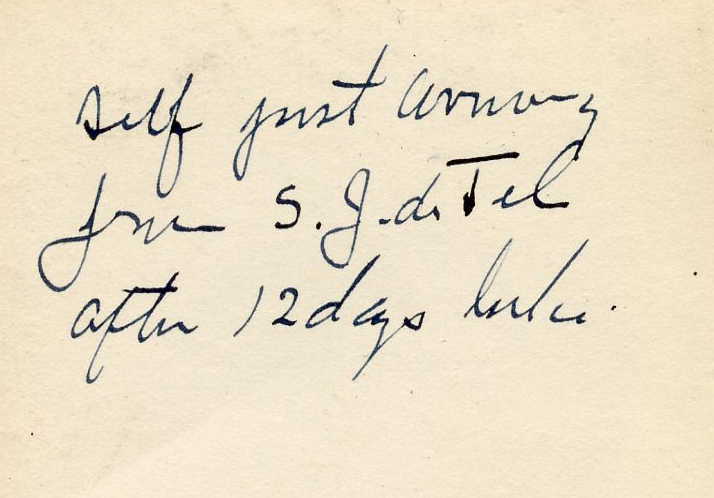 self just arriving
from S. J. de Tel
after 12 days